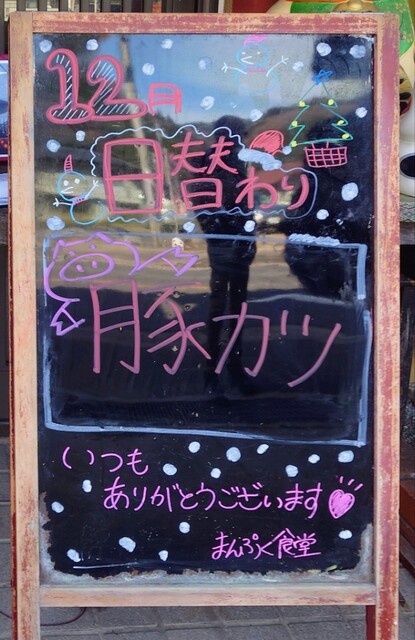 12月
日替わり
豚カツ
いつも
ありがとうございます
まんぷく食堂